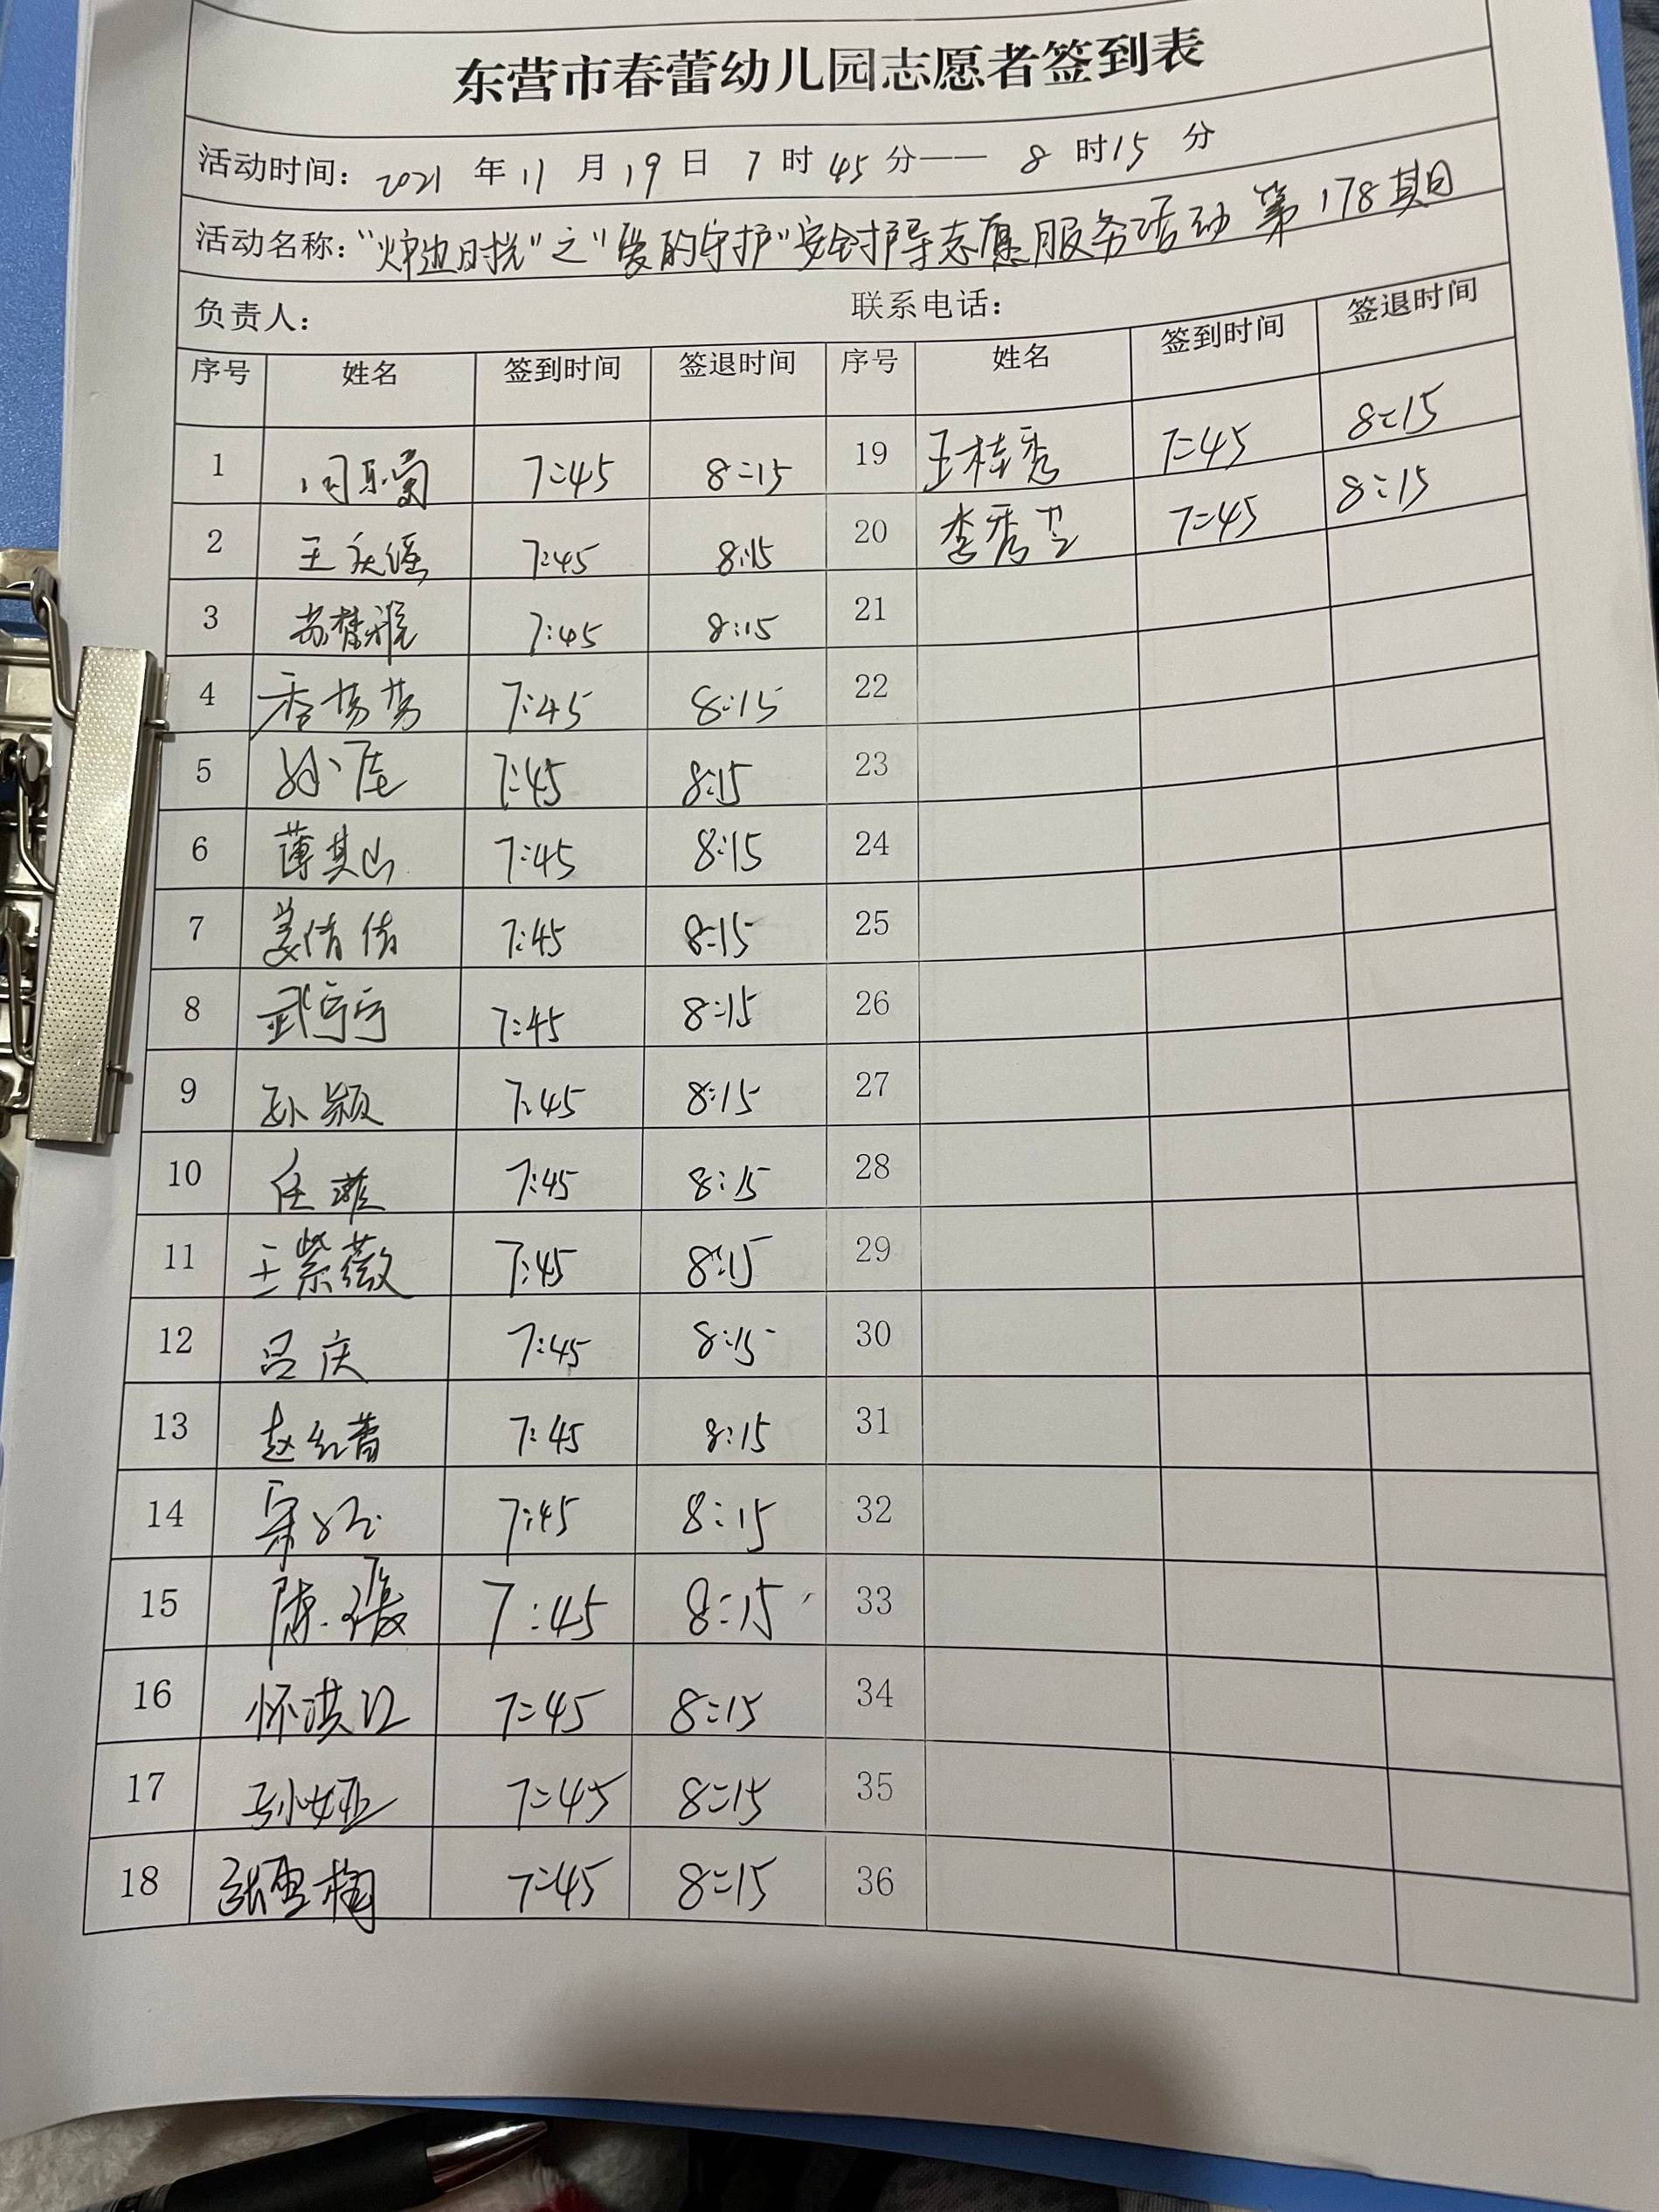 东营市春蕾幼儿园志愿者签到表
活动时间：2021 年 11 月 19 日 7 时 45 分—— 8 时 15 分
活动名称："炉边时光"之"爱的守护"安全护导志愿服务活动 第178期
负责人： 联系电话：
序号 姓名 签到时间 签退时间 序号 姓名 签到时间 签退时间
1 7:45 8:15 19 王桂秀 7:45 8:15
2 王庆瑶 7:45 8:15 20 李秀卫 7:45 8:15
3 苏梦雅 7:45 8:15 21
4 7:45 8:15 22
5 7:45 8:15 23
6 薄其山 7:45 8:15 24
7 姜倩倩 7:45 8:15 25
8 武宁宁 7:45 8:15 26
9 孙颖 7:45 8:15 27
10 任 7:45 8:15 28
11 王紫薇 7:45 8:15 29
12 吕庆 7:45 8:15 30
13 赵红蕾 7:45 8:15 31
14 宋 7:45 8:15 32
15 陈瑗 7:45 8:15 33
16 怀洪江 7:45 8:15 34
17 孙娅 7:45 8:15 35
18 张 梅 7:45 8:15 36